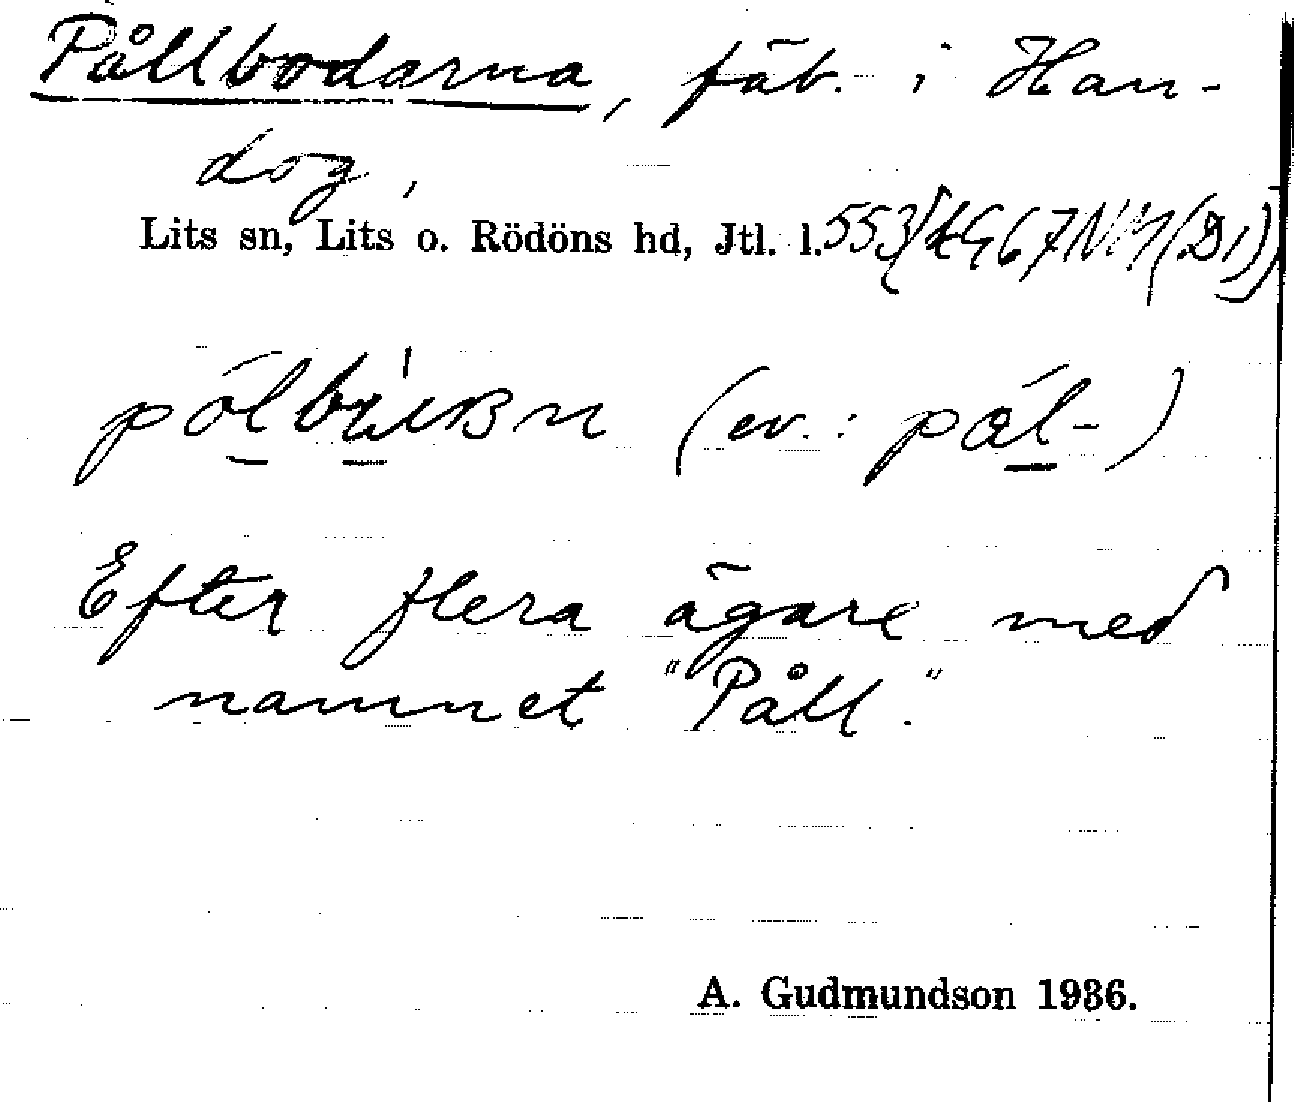 Pållbodarna, fäb. i Han-
dog,
Lits sn, Lits o. Rödöns hd, Jtl. l.
(ev.: pål-)
Efter flera ägare med
namnet "Påll".
A. Gudmundson 1936.